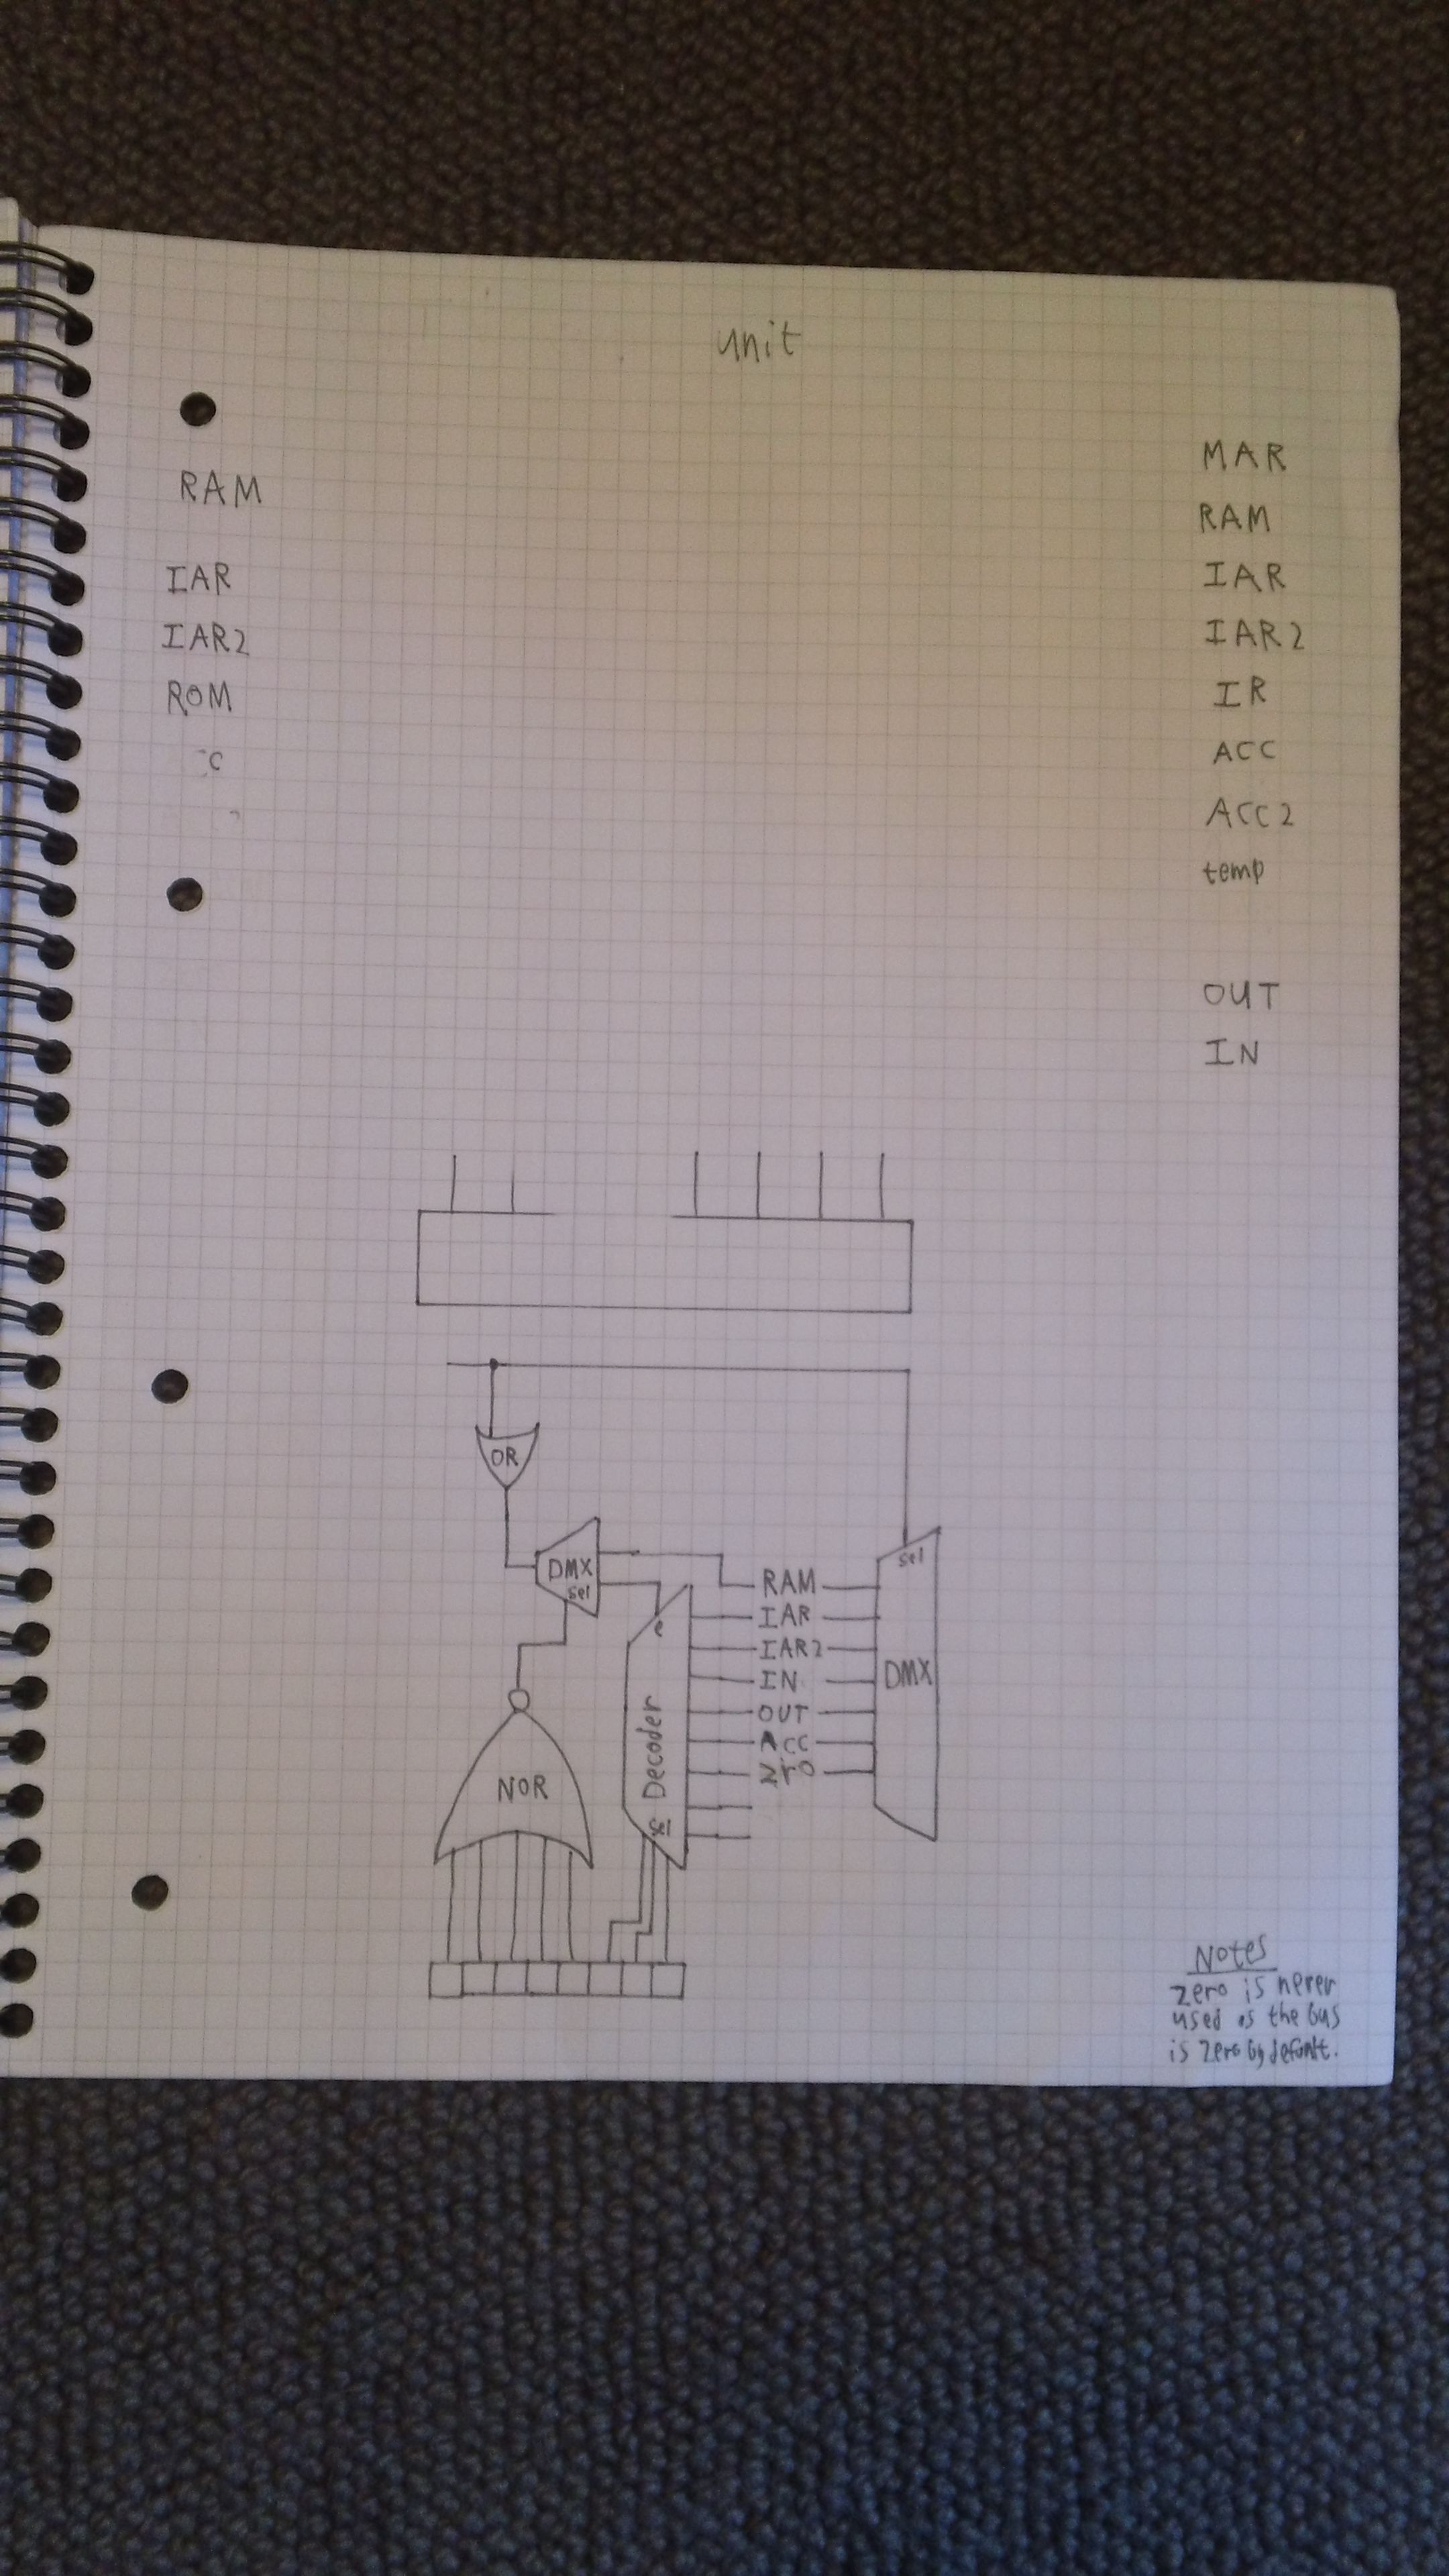 unit
RAM
IAR
IAR2
ROM
C
MAR
RAM
IAR
IAR2
IR
ACC
ACC2
temp
OUT
IN
OR
DMX
sel
NOR
e
Decoder
sel
RAM
IAR
IAR2
IN
OUT
ACC
zro
sel
DMX
Notes
zero is never
used as the bus
is zero by default.